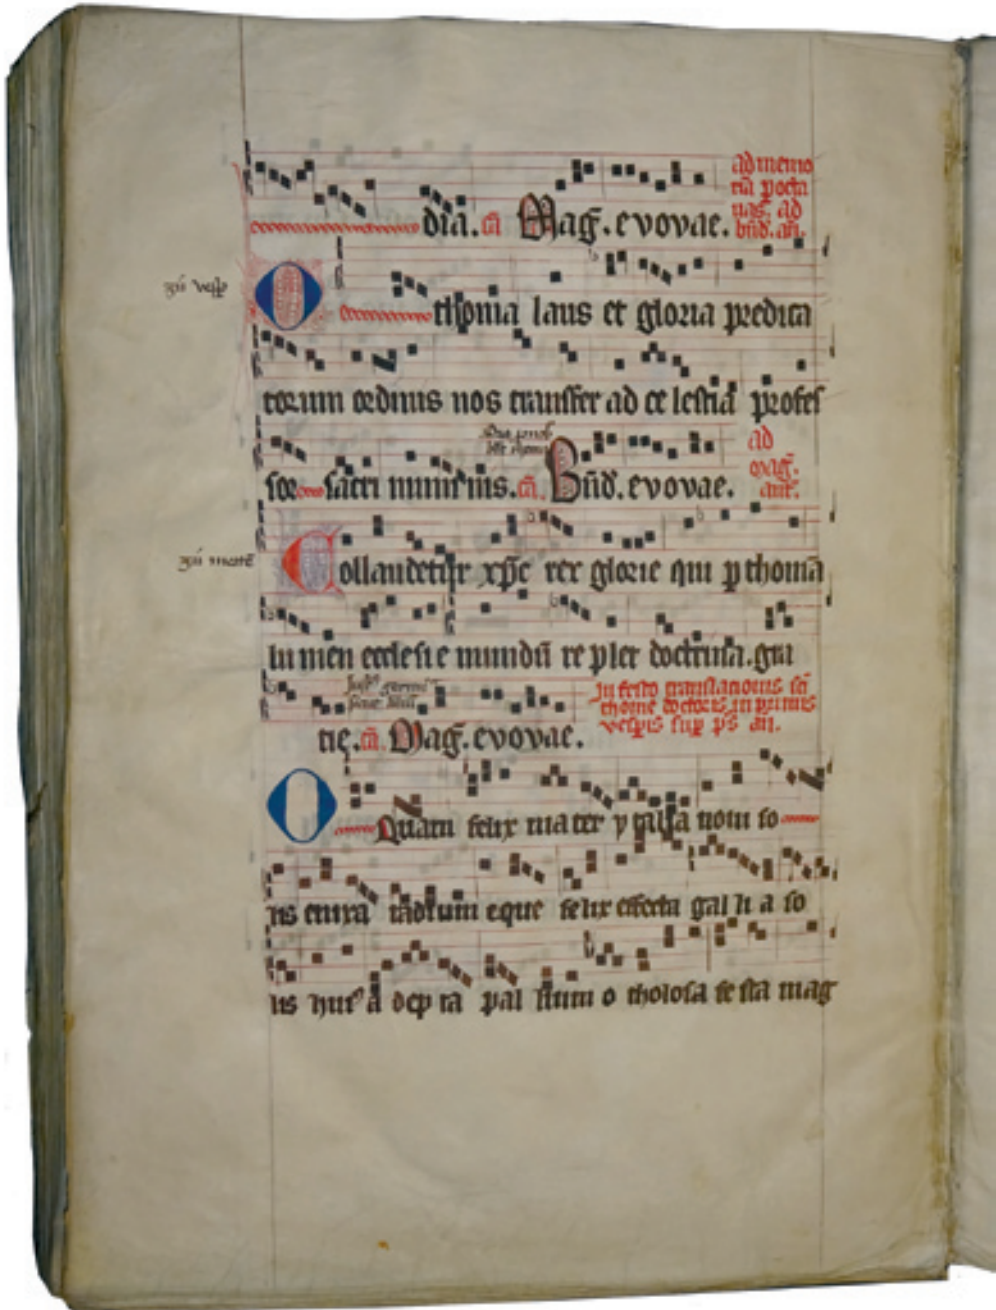 dia. cā Mag̃. evovae. ad memo
riā p octa
vas. ad
bn̄d. an̄.
O thoma laus et gloria predica
torum ordinis nos transfer ad ce lestia profes
sor sacri numinis. cā. Bn̄d. evovae. ad
mag̃.
ant.
Collaudetur xp̄c rex glorie qui p thomā
lu men ecclesi e mundū re plet doctrina. gra
tie. cā. Mag̃. evovae. In festo translationis sc̄i
thome doctoris in primis
vesp̄is sup̄ p̄s an̄.
O Quam felix mater ytalia novi so
lis enixa radium eque felix effecta gal li a so
lis hui' a dep ta pal lium o tholosa fe sta mag